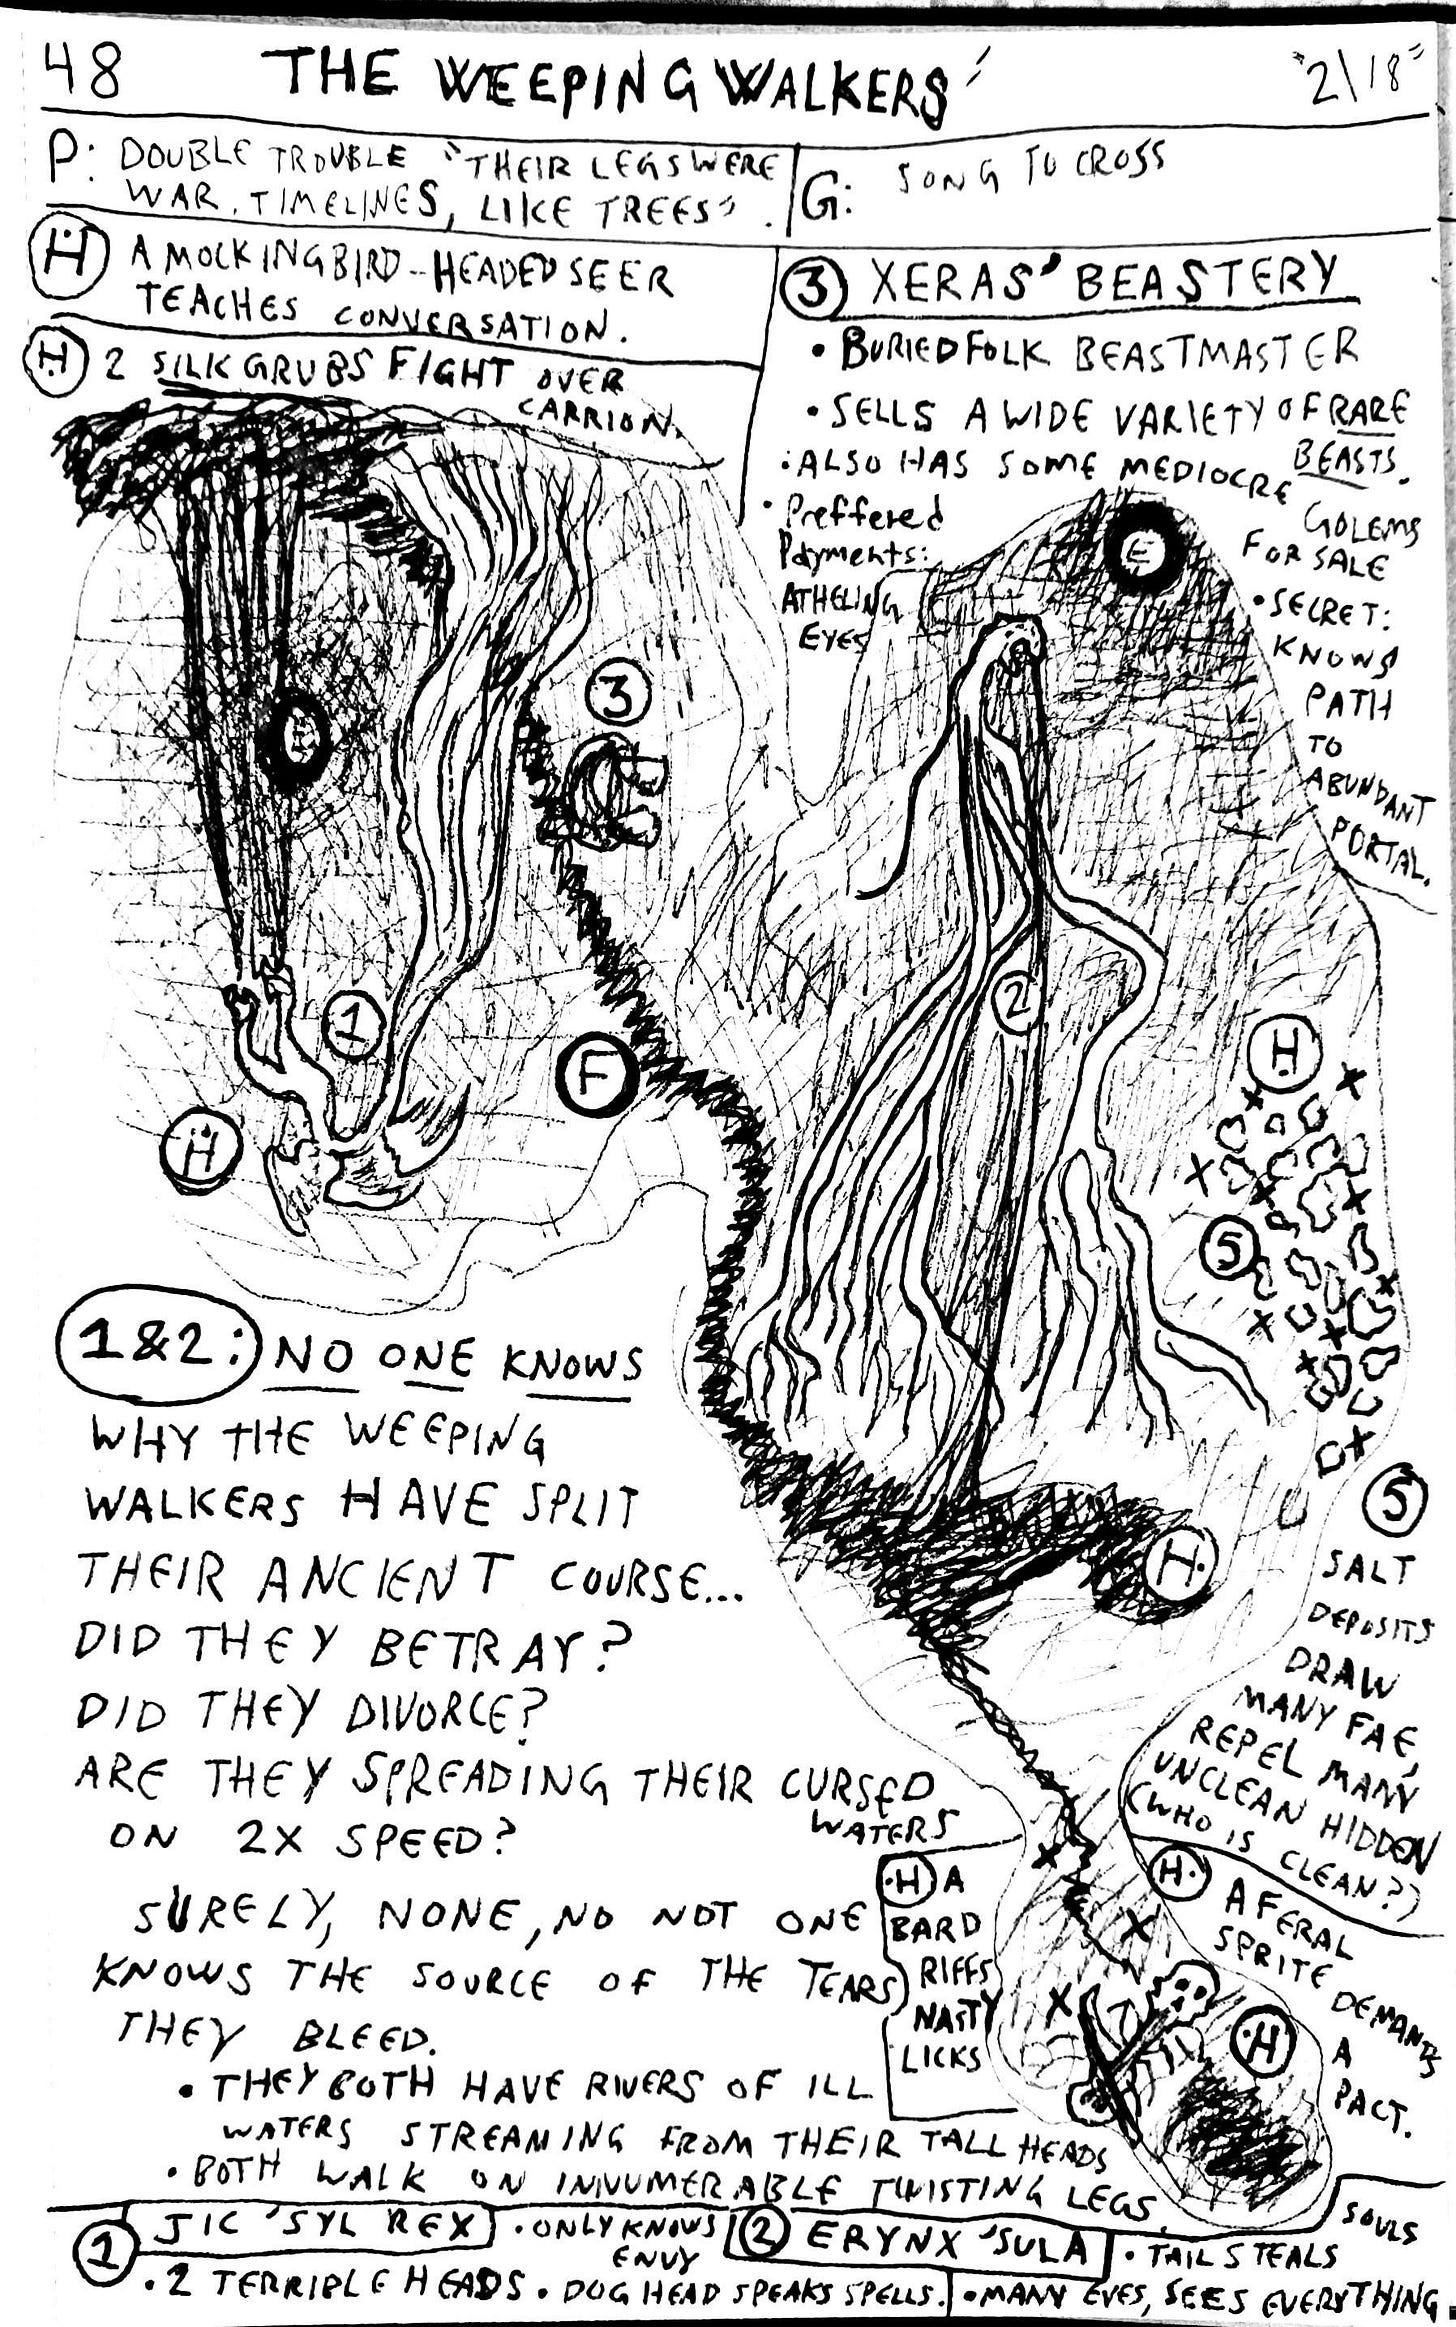 48
THE WEEPING WALKERS
"2\18"
P: DOUBLE TROUBLE "THEIR LEGS WERE
WAR. TIMELINES, LIKE TREES".
G: SONG TO CROSS
H A MOCKINGBIRD-HEADED SEER
TEACHES CONVERSATION.
H 2 SILK GRUBS FIGHT OVER
CARRION.
3 XERAS' BEASTERY
• BURIEDFOLK BEASTMASTER
• SELLS A WIDE VARIETY OF RARE
BEASTS.
• ALSO HAS SOME MEDIOCRE
GOLEMS
FOR SALE
• Preffered
Payments:
ATHELING
EYES
• SECRET:
KNOWS
PATH
TO
ABUNDANT
PORTAL.
E
E
3
1
2
F
H
H
5
H
1&2: NO ONE KNOWS
WHY THE WEEPING
WALKERS HAVE SPLIT
THEIR ANCIENT COURSE...
DID THEY BETRAY?
DID THEY DIVORCE?
ARE THEY SPREADING THEIR CURSED
WATERS
ON 2X SPEED?
SURELY, NONE, NO NOT ONE
KNOWS THE SOURCE OF THE TEARS
THEY BLEED.
• THEY BOTH HAVE RIVERS OF ILL
WATERS STREAMING FROM THEIR TALL HEADS
• BOTH WALK ON INNUMERABLE TWISTING LEGS.
5
SALT
DEPOSITS
DRAW
MANY FAE,
REPEL MANY
UNCLEAN HIDDEN
(WHO IS CLEAN?)
H A
BARD
RIFFS
NASTY
LICKS
H A FERAL
SPRITE
DEMANDS
A
PACT.
H
1 JIC 'SYL REX
• ONLY KNOWS
ENVY
• 2 TERRIBLE HEADS • DOG HEAD SPEAKS SPELLS.
2 ERYNX 'SULA
• TAIL STEALS
SOULS
• MANY EYES, SEES EVERYTHING.